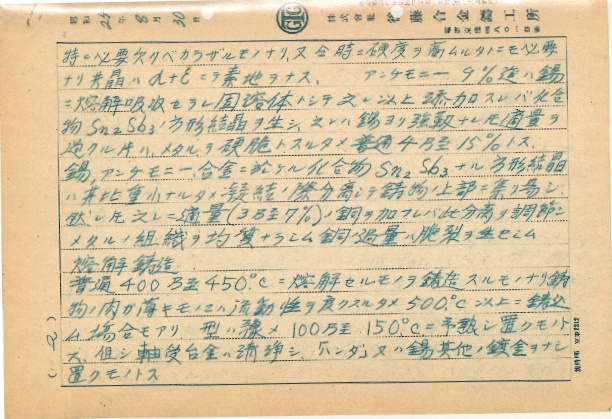 昭和24年8月30日
株式會社 齋藤合金鑄工所
特ニ必要欠リベカラザルモノナリ、又合時ニ硬度ヲ高ムルタメニモ必要
ナリ共晶ハα+εニテ素地ヲナス、 アンチモニー 9%迄ハ錫
ニ熔解吸收セラレ固溶体トシテ之レ以上添加スレバ化合
物Sn₂Sb₃ノ方形結晶ヲ生シ、之レハ錫ヨリ強靱ナレ圧適量ヲ
過クル片ハ、メタルヲ硬脆トスルタメ普通4乃至15%トス、
錫、アンチモニー、合金ニ於ケル化合物Sn₂Sb₃ナル方形結晶
ハ其比重小ナルタメ凝結ノ際分離シテ鋳物ノ上部ニ集リ易シ、
然レ圧之レニ適量(3乃至7%)ノ銅ヲ加フレバ此分離ヲ調節シ
メタルノ組織ヲ均質ナラシム銅ノ過量ハ脆裂ヲ生セシム
熔解鋳造
普通400乃至450°Cニ熔解セルモノヲ鋳造スルモノナリ鋳
物ノ肉カ薄キモノニハ流動性ヲ良クスルタメ500°C以上ニ鋳込
ム場合モアリ 型ハ濃メ100乃至150°Cニ予熱シ置クモノト
ス、但シ軸受台金ハ清浄シ、「ハンダ」又ハ錫其他ノ鍍金ヲナシ
置クモノトス
(一2)